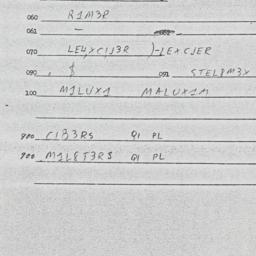 060 R1M3R
061 -
070 LE4XC1J3R )-LEXCJER
090 091 STEL8M3X
100 M1LUX1 MALUX1M
900 C1B3RS Q1 PL
900 M1L8T3RS Q1 PL